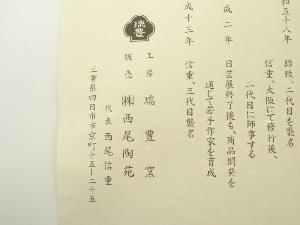 和五十八年 雄致、二代目を襲名
信重、大阪にて修行後、
二代目に師事する
成二年 日芸展終了後も、商品開発を
通じて若手作家を育成
成十三年 信重、三代目襲名
瑞豊
工房 瑞豊窯
販売 ㈱西尾陶苑
代表 西尾信重
三重県四日市市京町十五ー二十五